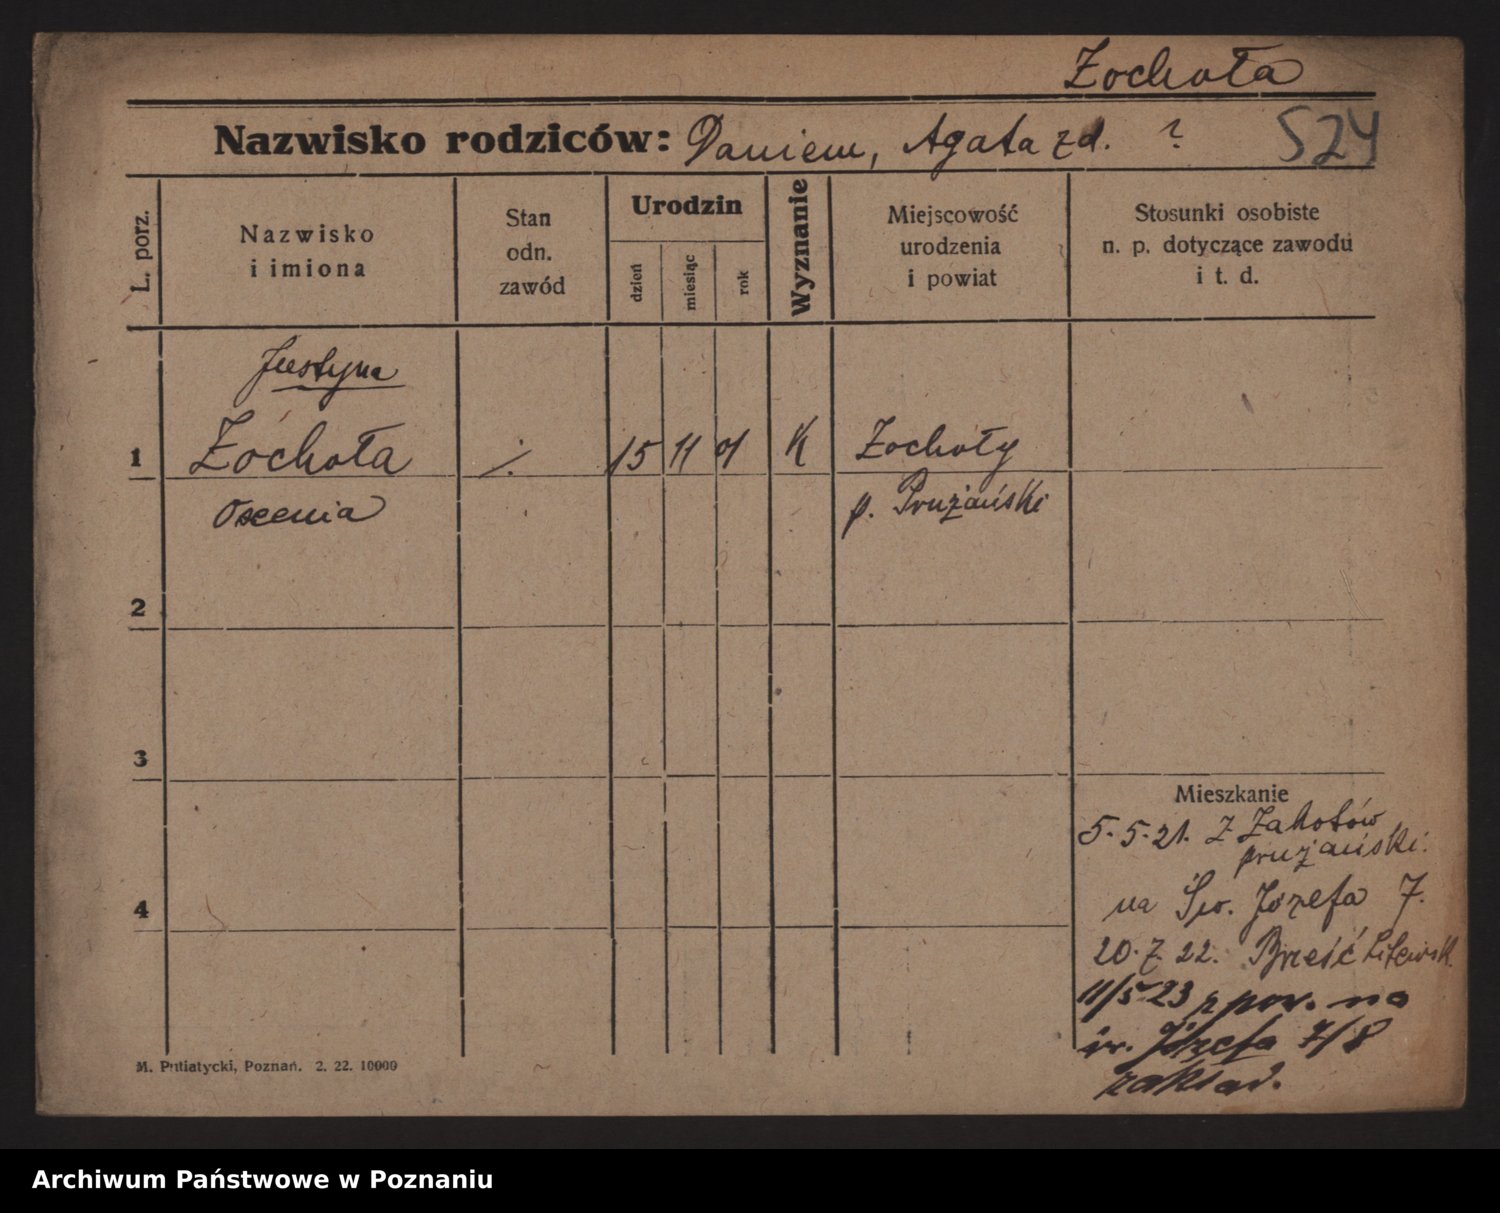 Żochoła
Nazwisko rodziców: Daniem, Agata zd. ?
524
L. porz.
Nazwisko
i imiona
Stan
odn.
zawód
Urodzin
dzień
miesiąc
rok
Wyznanie
Miejscowość
urodzenia
i powiat
Stosunki osobiste
n. p. dotyczące zawodu
i t. d.
Justyna
1 Żochoła ·/· 15 11 01 K Żochoły
Oxenia p. Prużański
2
3
Mieszkanie
5.5.21. z
prużański.
4
na Św. Józefa 7.
20.7.22. Brześć Litewsk.
11/5 23 z pow. na
św. Józefa 7/8
zakład.
M. Putiatycki, Poznań. 2. 22. 10000
Archiwum Państwowe w Poznaniu